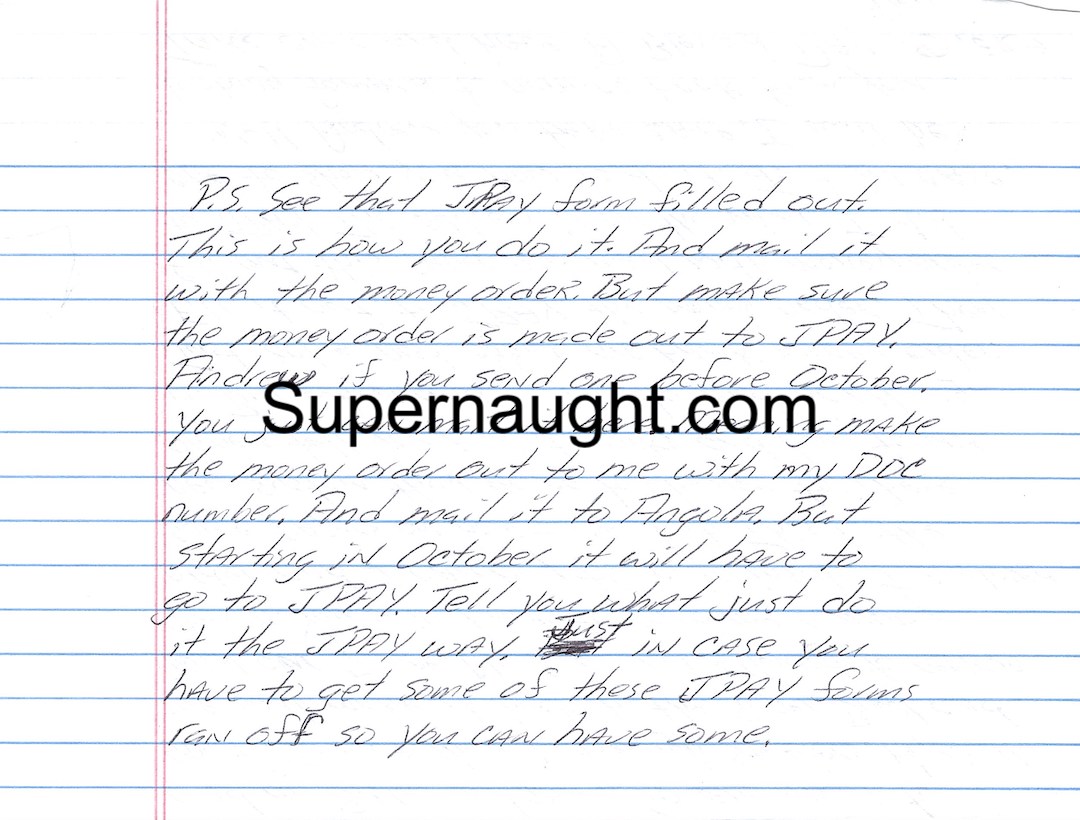 P.S. See that JPAY form filled out.
This is how you do it. And mail it
with the money order. But make sure
the money order is made out to JPAY.
Andrew if you send one before October.
Supernaught.com
You make
the money order out to me with my DOC
number. And mail it to Angola. But
starting in October it will have to
go to JPAY. Tell you what just do
it the JPAY way. Just in case you
have to get some of these JPAY forms
ran off so you can have some.